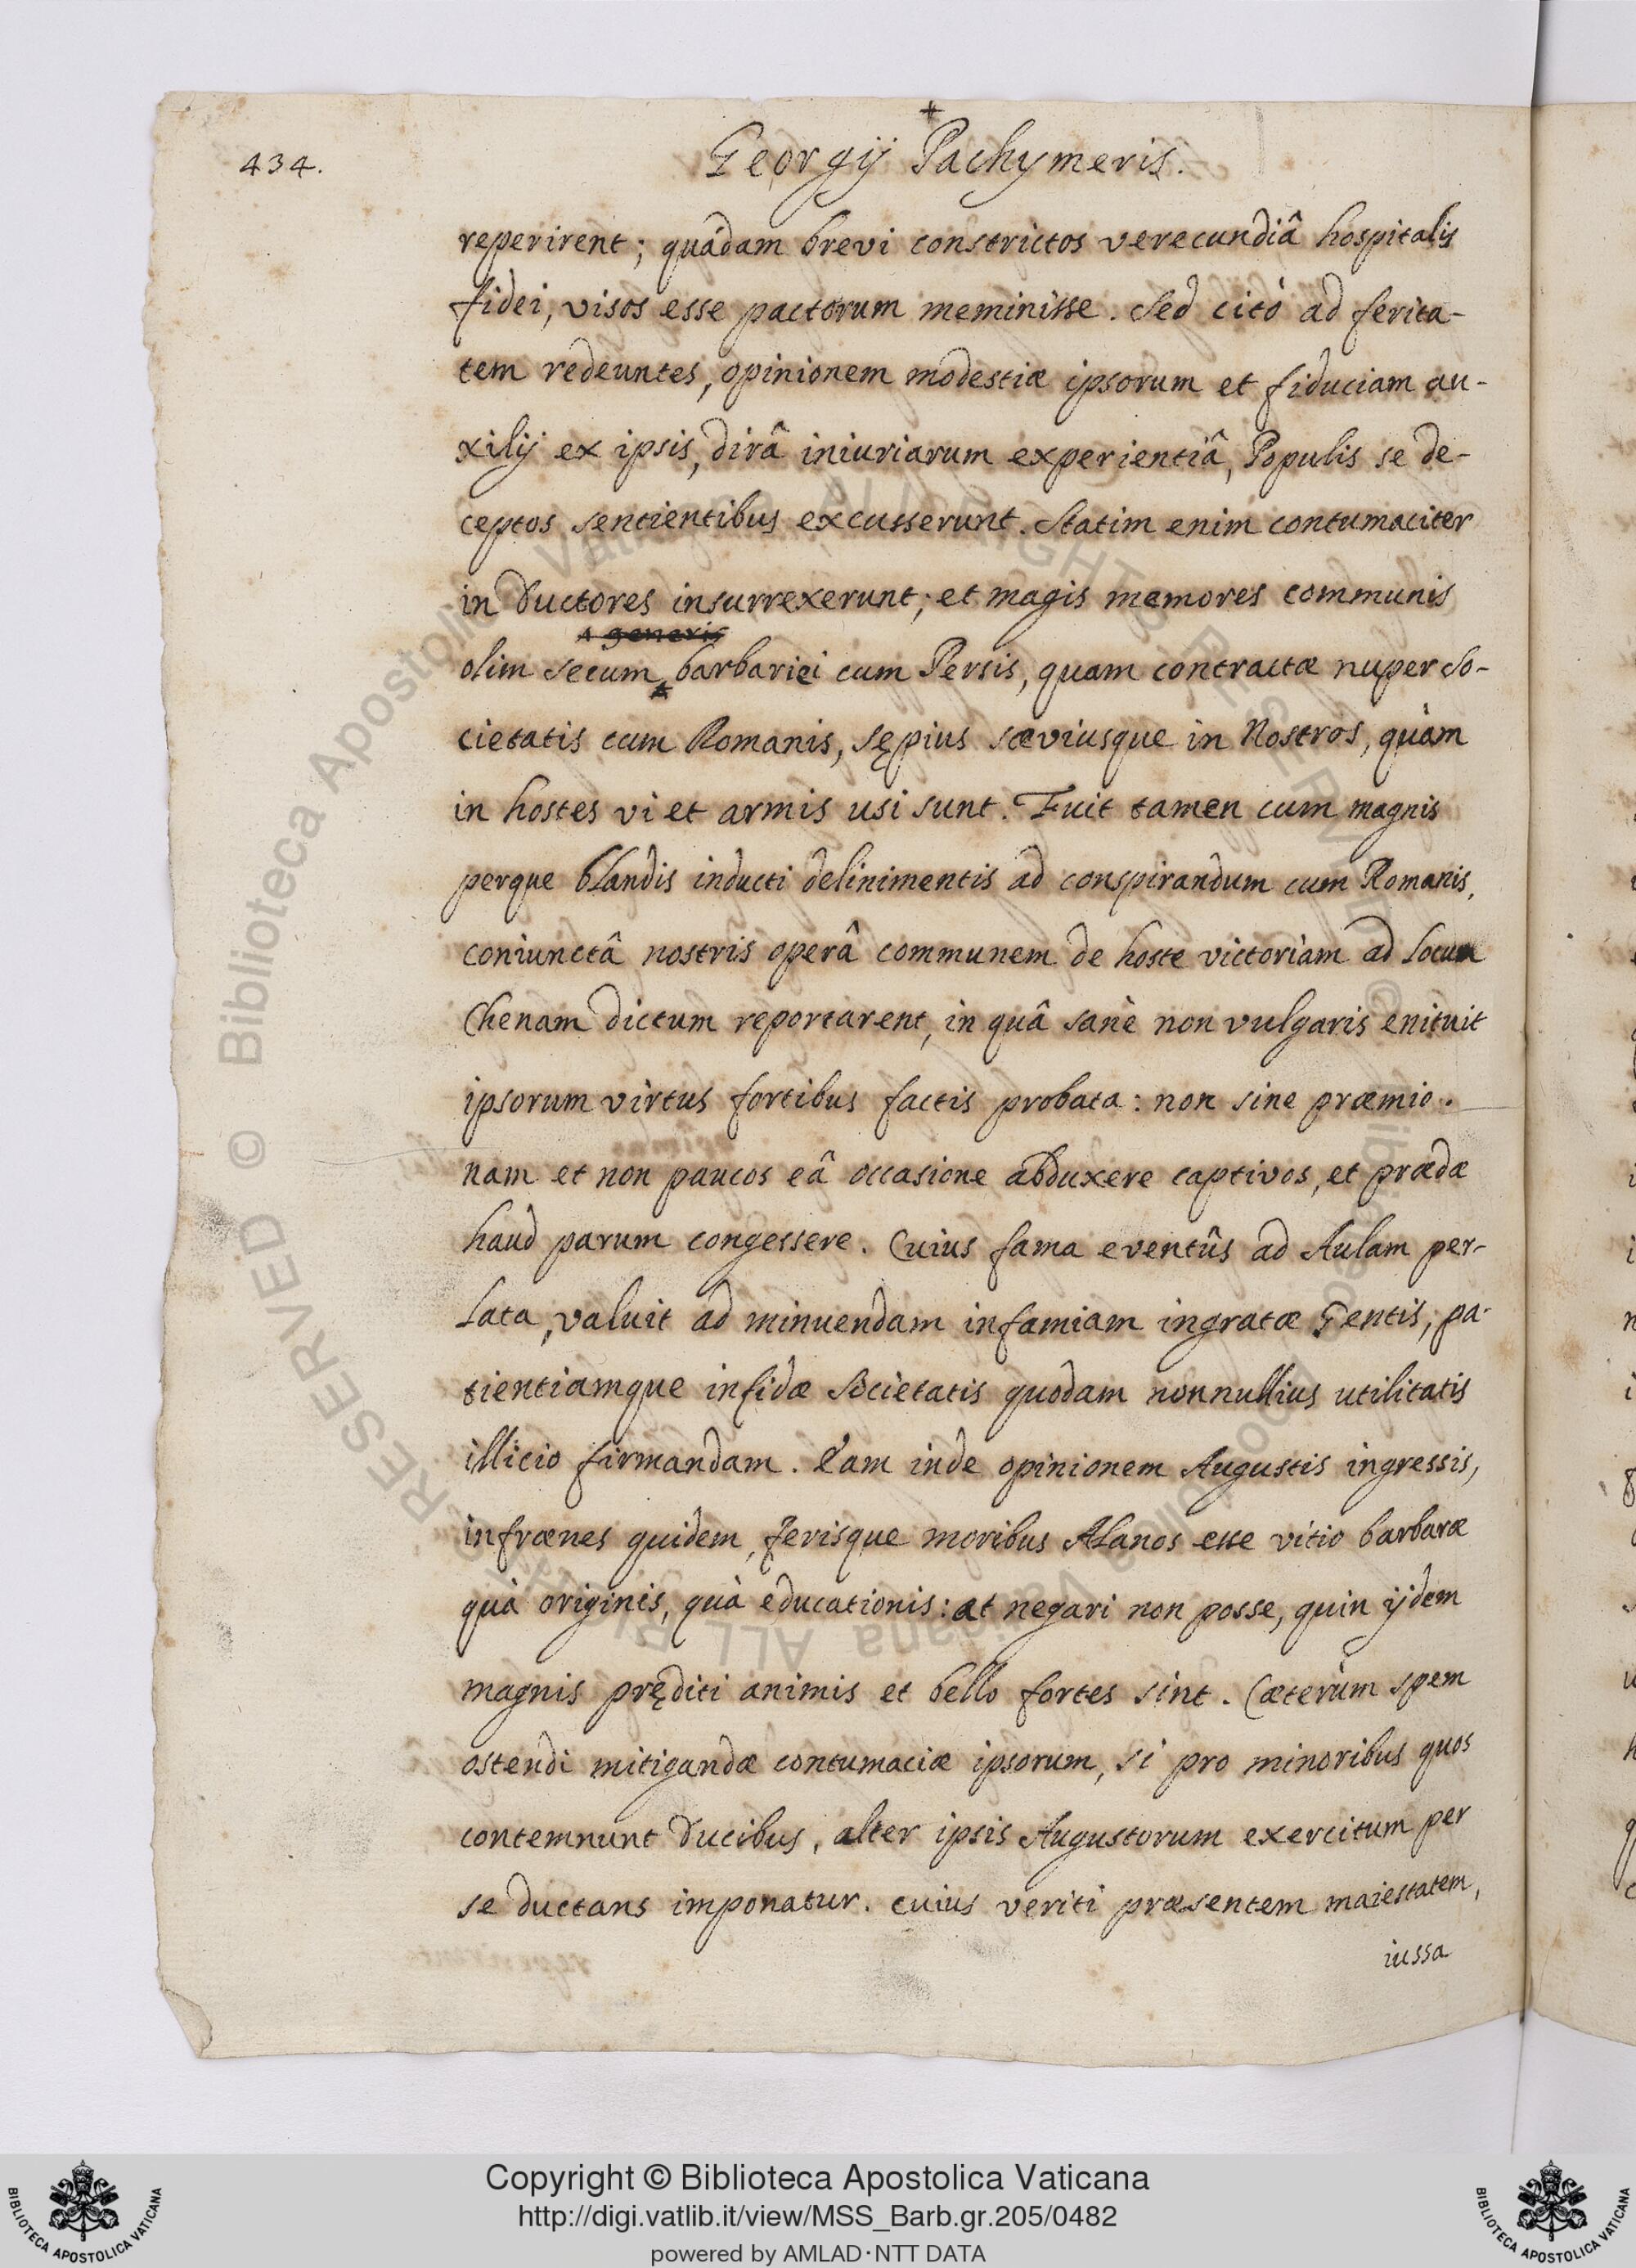 434.
+
Georgij Pachymeris.
reperirent; quâdam brevi constrictos verecundiâ hospitalis
fidei, visos esse pactorum meminisse. Sed citò ad ferita-
tem redeuntes, opinionem modestiæ ipsorum et fiduciam au-
xilij ex ipsis, dirâ iniuriarum experientiâ, Populis se de-
ceptos sentientibus excusserunt. Statim enim contumaciter
in Ductores insurrexerunt; et magis memores communis
generis
olim secum barbariei cum Persis, quam contractæ nuper So-
cietatis cum Romanis, sępius sæviusque in Nostros, quàm
in hostes vi et armis usi sunt. Fuit tamen cum magnis
perque blandis inducti delinimentis ad conspirandum cum Romanis,
coniunctâ nostris operâ communem de hoste victoriam ad locum
Chenam dictum reportarent, in quâ sanè non vulgaris enituit
ipsorum virtus fortibus factis probata: non sine præmio.
nam et non paucos eâ occasione abduxere captivos, et prædæ
haud parum congessere. Cuius fama eventûs ad Aulam per-
lata, valuit ad minuendam infamiam ingratæ Gentis, pa-
tientiamque infidæ Societatis quodam nonnullius utilitatis
illicio firmandam. Eam inde opinionem Augustis ingressis,
infrænes quidem, ferisque moribus Alanos esse vitio barbaræ
quà originis, quà educationis: at negari non posse, quin ijdem
magnis pręditi animis et bello fortes sint. Cæterùm spem
ostendi mitigandæ contumaciæ ipsorum, si pro minoribus quos
contemnunt Ducibus, alter ipsis Augustorum exercitum per
se ductans imponatur. cuius veriti præsentem maiestatem,
iussa
Copyright © Biblioteca Apostolica Vaticana
http://digi.vatlib.it/view/MSS_Barb.gr.205/0482
powered by AMLAD·NTT DATA
BIBLIOTECA APOSTOLICA VATICANA
BIBLIOTECA APOSTOLICA VATICANA